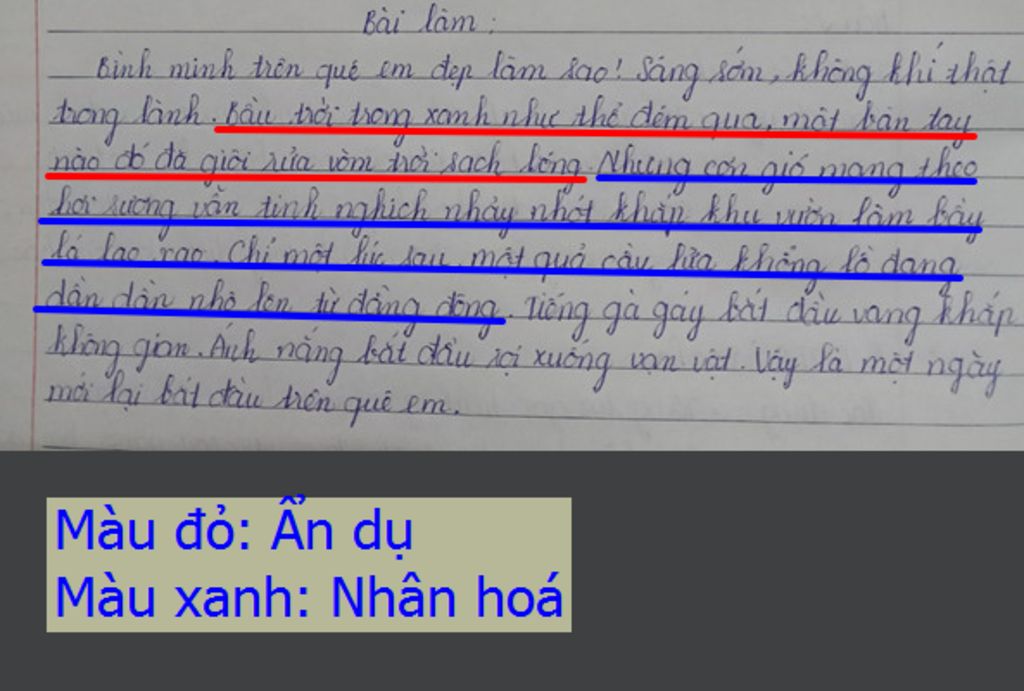 Bài làm:
Bình minh trên quê em đẹp làm sao! Sáng sớm, không khí thật
trong lành. Bầu trời trong xanh như thể đêm qua, một bàn tay
nào đó đã giội rửa vòm trời sạch bóng. Nhưng cơn gió mang theo
hơi sương vẫn tinh nghịch nhảy nhót khắp khu vườn làm bầy
lá lao rao. Chỉ một lúc sau một quả cầu lửa khổng lồ đang
dần dần nhô lên từ đằng đông. Tiếng gà gáy bắt đầu vang khắp
không gian. Ánh nắng bắt đầu rọi xuống vạn vật. Vậy là một ngày
mới lại bắt đầu trên quê em.
Màu đỏ: Ẩn dụ
Màu xanh: Nhân hoá